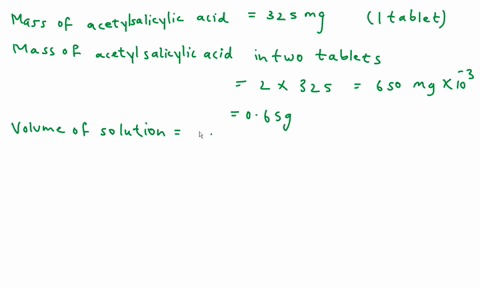 Mass of acetylsalicylic acid = 325 mg (1 tablet)
Mass of acetyl salicylic acid in two tablets
= 2 × 325 = 650 mg × 10⁻³
= 0.65g
Volume of solution =